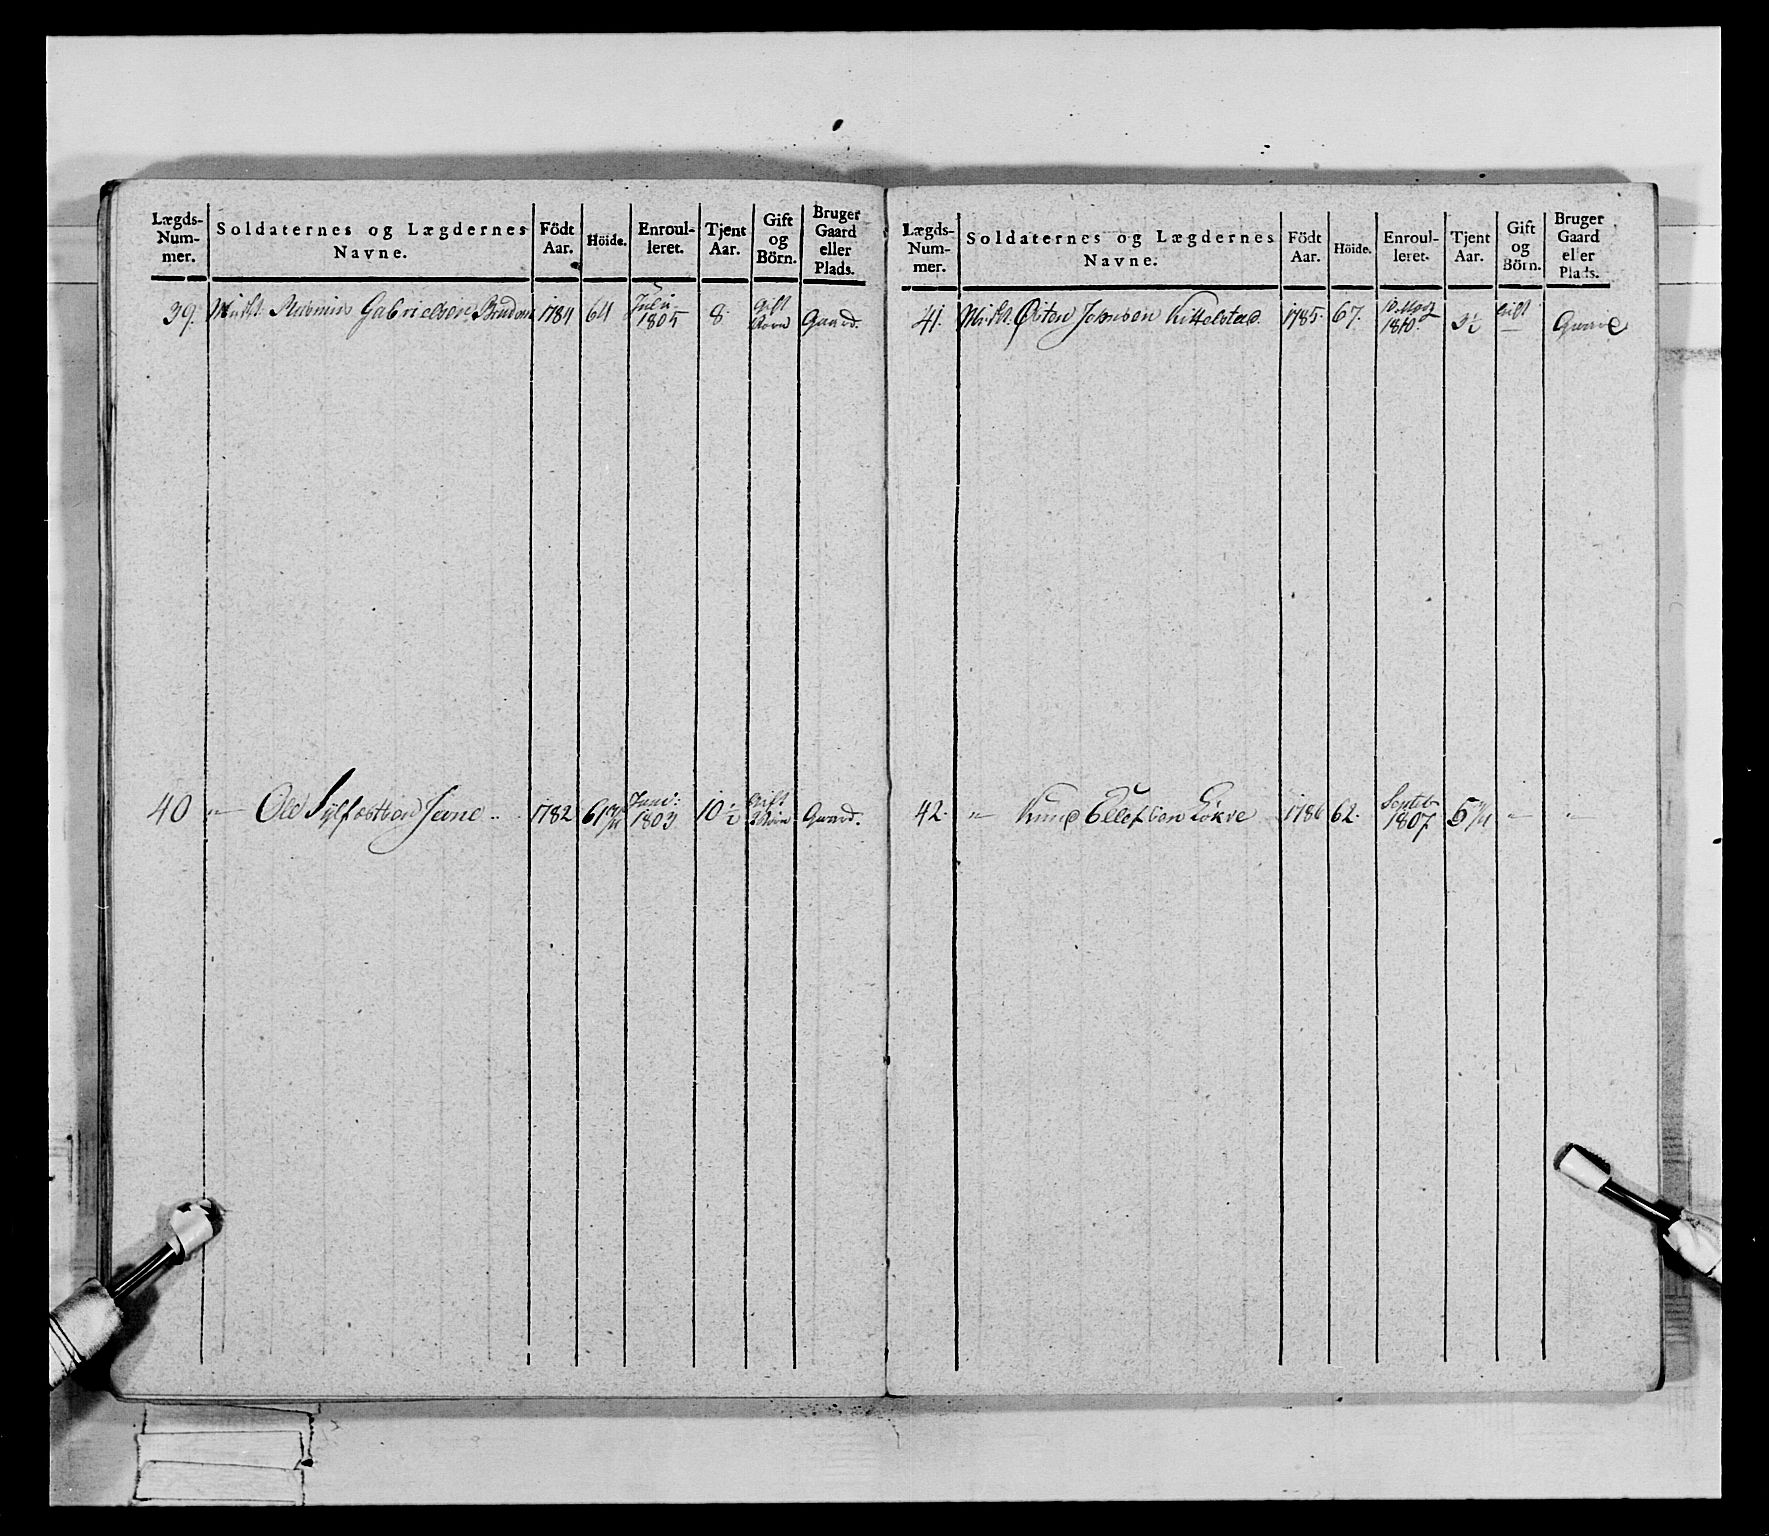 Lægds-
Num-
mer.
Soldaternes og Lægdernes
Navne.
Födt
Aar.
Höide.
Enroul-
leret.
Tjent
Aar.
Gift
og
Börn.
Bruger
Gaard
eller
Plads.
39. Rasmus Gabrielsen 1784 64 Juli 8. Gift Gaard.
1805
40 " Ole Sylfestsen 1782 61 Juni: 10 1/2 Gift Gaard.
1803
Lægds-
Num-
mer.
Soldaternes og Lægdernes
Navne.
Födt
Aar.
Höide.
Enroul-
leret.
Tjent
Aar.
Gift
og
Börn.
Bruger
Gaard
eller
Plads.
41. Østen Johnsen Kittelstad. 1785. 67. 3 1/2 Gift Gaard
1810
42. " Knud Ellefsen Løkve 1786 62. Septbr 5 " "
1807